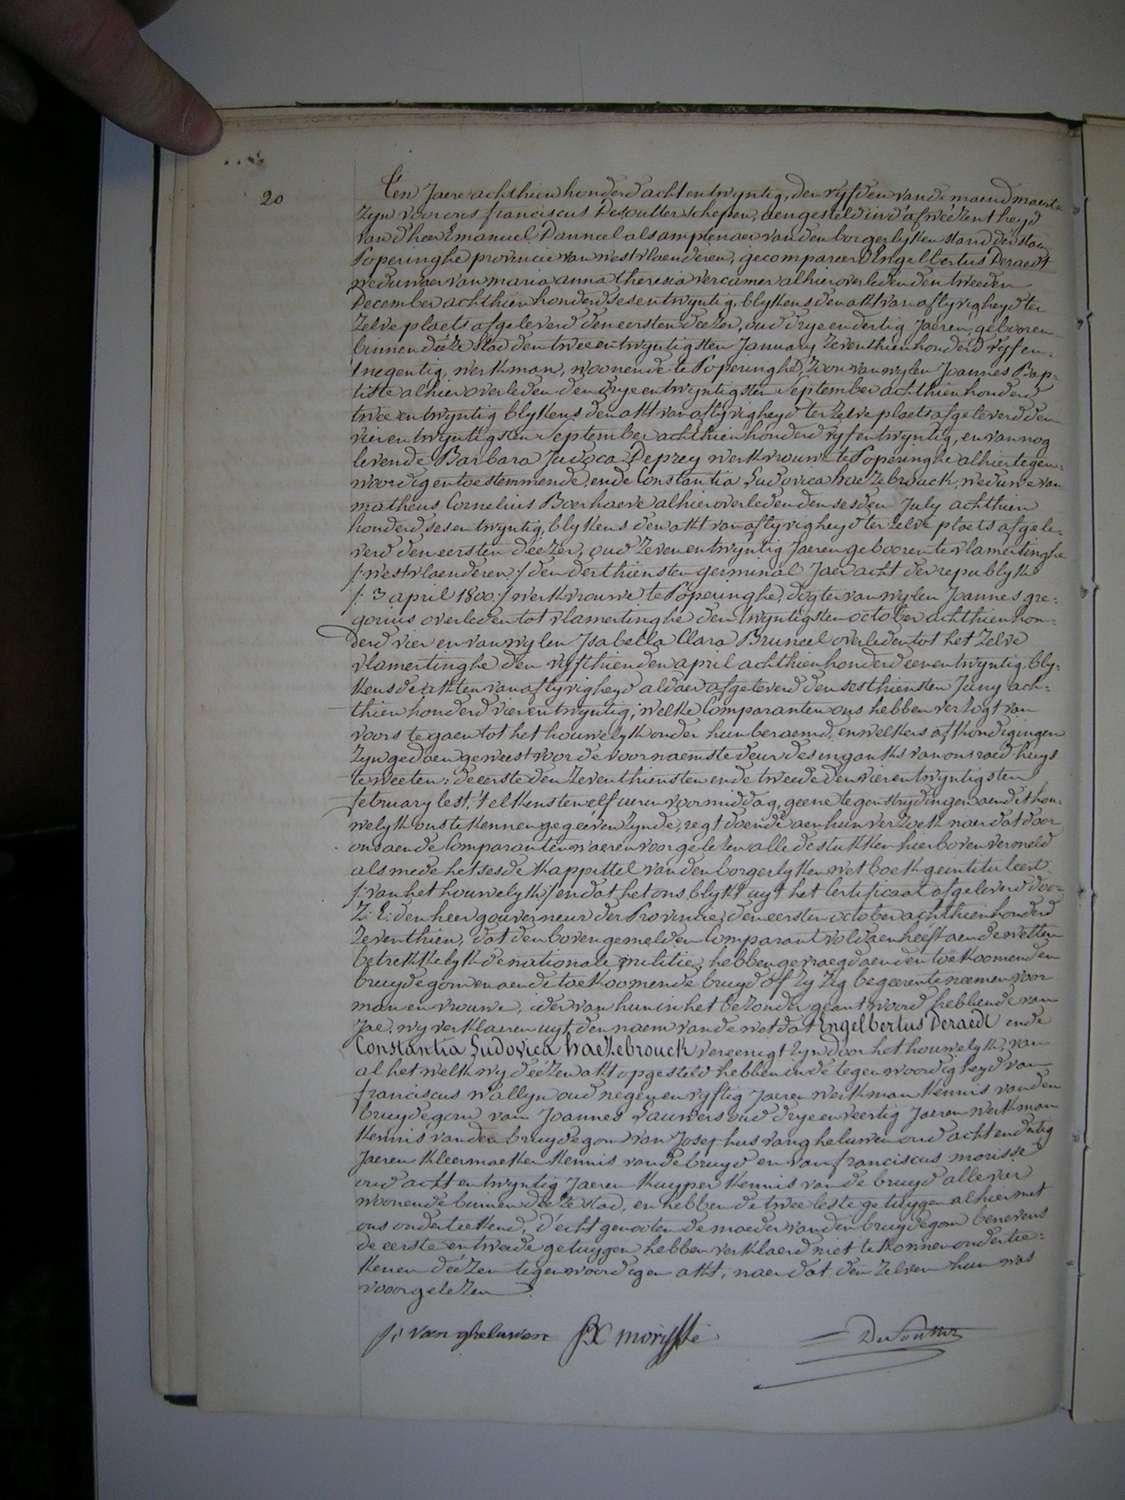 20
Ten Jaere achthien honderd acht en twyntig, den vyfden van de maend maerte
Zyn voor ons franciscus Desoutter schepen, aengesteld in d'afweezentheyd
van d'heer Emanuel Danneel als amptenaer van den borgerlyken stand der stad
Poperinghe provincie van westvlaenderen, gecompareerd Engelbertus Deraedt
weduwaer van maria anna theresia vercamer alhier overleden den tweeden
December achthien honderd sesentwyntig, blykens den akt van aflyvigheyd ter
Zelve plaets afgeleverd den eersten deezer, oud drye en dertig Jaeren, gebooren
binnen deeze stad den twee en twyntigsten January Zeventhien honderd vyf en
tnegentig, werkman, woonende te Poperinghe, Zoon van wylen Joannes Bap-
tiste alhier overleden den drye en twyntigsten September achthien honderd
twee en twyntig blykens den akt van aflyvigheyd ter Zelve plaets afgeleverd den
vierentwyntigsten September achthien honderd vyfentwyntig, en van nog
levende Barbara Judoca Deprey werkvrouwe te Poperinghe alhier tegen-
woordig en toestemmende, ende Constantia Ludovica haezebrouck, weduwe van
matheus Cornelius Boerhaeve alhier overleden den sesden July achthien
honderd sesentwyntig, blykens den akt van aflyvigheyd ter zelve plaets afgele-
verd den eersten deezer, oud Zevenentwyntig Jaeren gebooren te vlamertinghe
/: westvlaenderen :/ den derthiensten germinal Jaer acht der republyke
/: 3 april 1800 :/ werkvrouwe te Poperinghe, dogter van wylen Joannes gre-
gorius overleden tot vlamertinghe den twyntigsten october achthien hon-
derd vier en van wylen Isabella Clara Bruneel overleden tot het Zelve
vlamertinghe den vyfthienden april achthien honderd eenentwyntig, bly-
kens de akten van aflyvigheyd aldaer afgeleverd den sesthiensten Juny ach-
thien honderd vierentwyntig; welke Comparanten ons hebben verzogt van
voors te gaen tot het houwelyk onder hun beraemd, en welkers afkondigingen
Zyn gedaen geweest voor de voornaemste deur des ingankks van ons raed huys
te weeten: de eerste den Zeventhiensten ende tweede den vierentwyntigsten
february lest, t'elkens ten elf uren voormiddag, geene tegenstrydingen aen dit hou-
welyk ons te kennen gegeeven zynde, regt doende aen hun verzoek naer dat door
ons aen de Comparanten waeren voorgelezen alle de stukken hier boven vermeld
als mede het sesde kappittel van den borgerlyken wetboek geintituleerd
/: van het houwelyk :/ en dat het ons blykt uyt het Certificaat afgeleverd door
Z: E: den heer gouverneur der Provincie, den eersten october achthien honderd
Zeventhien, dat den boven gemelden Comparant voldaen heeft aen de wetten
betrekkelyk de nationale militie; hebben gevraegd aen den toekoomenden
bruydegom en aen de toekoomende bruyd of Zy Zig begeeren te neemen voor
man en vrouwe, ider van hun in het bezonder geantwoord hebbende van
Jae, wy verklaeren uyt den naem van de wet dat Engelbertus Deraedt ende
Constantia Ludovica haezebrouck vereenigt zyn door het houwelyk, van
al het welk wy deezen akt opgesteld hebben in de tegenwoordigheyd van
franciscus Wallyn oud negen en vyftig Jaeren werkman kennis van den
bruydegom van Joannes Lauwers oud drye en veertig Jaeren werkman
kennis van den bruydegom van Josephus vangheluwen oud acht en dertig
Jaeren kleermaeker kennis van de bruyd en van franciscus morisse
oud achtentwyntig Jaeren kuyper kennis van de bruyd alle vier
woonende binnen deeze stad, en hebben de twee leste getuygen alhier met
ons onderteekend, d'echtgenooten de moeder van den bruydegom benevens
de eerste en tweede getuygen hebben verklaerd niet te konnen ondertee-
kenen deezen tegenwoordigen akt, naer dat den Zelven hun was
voorgelezen
J: van gheluwen FX morisse Desoutter